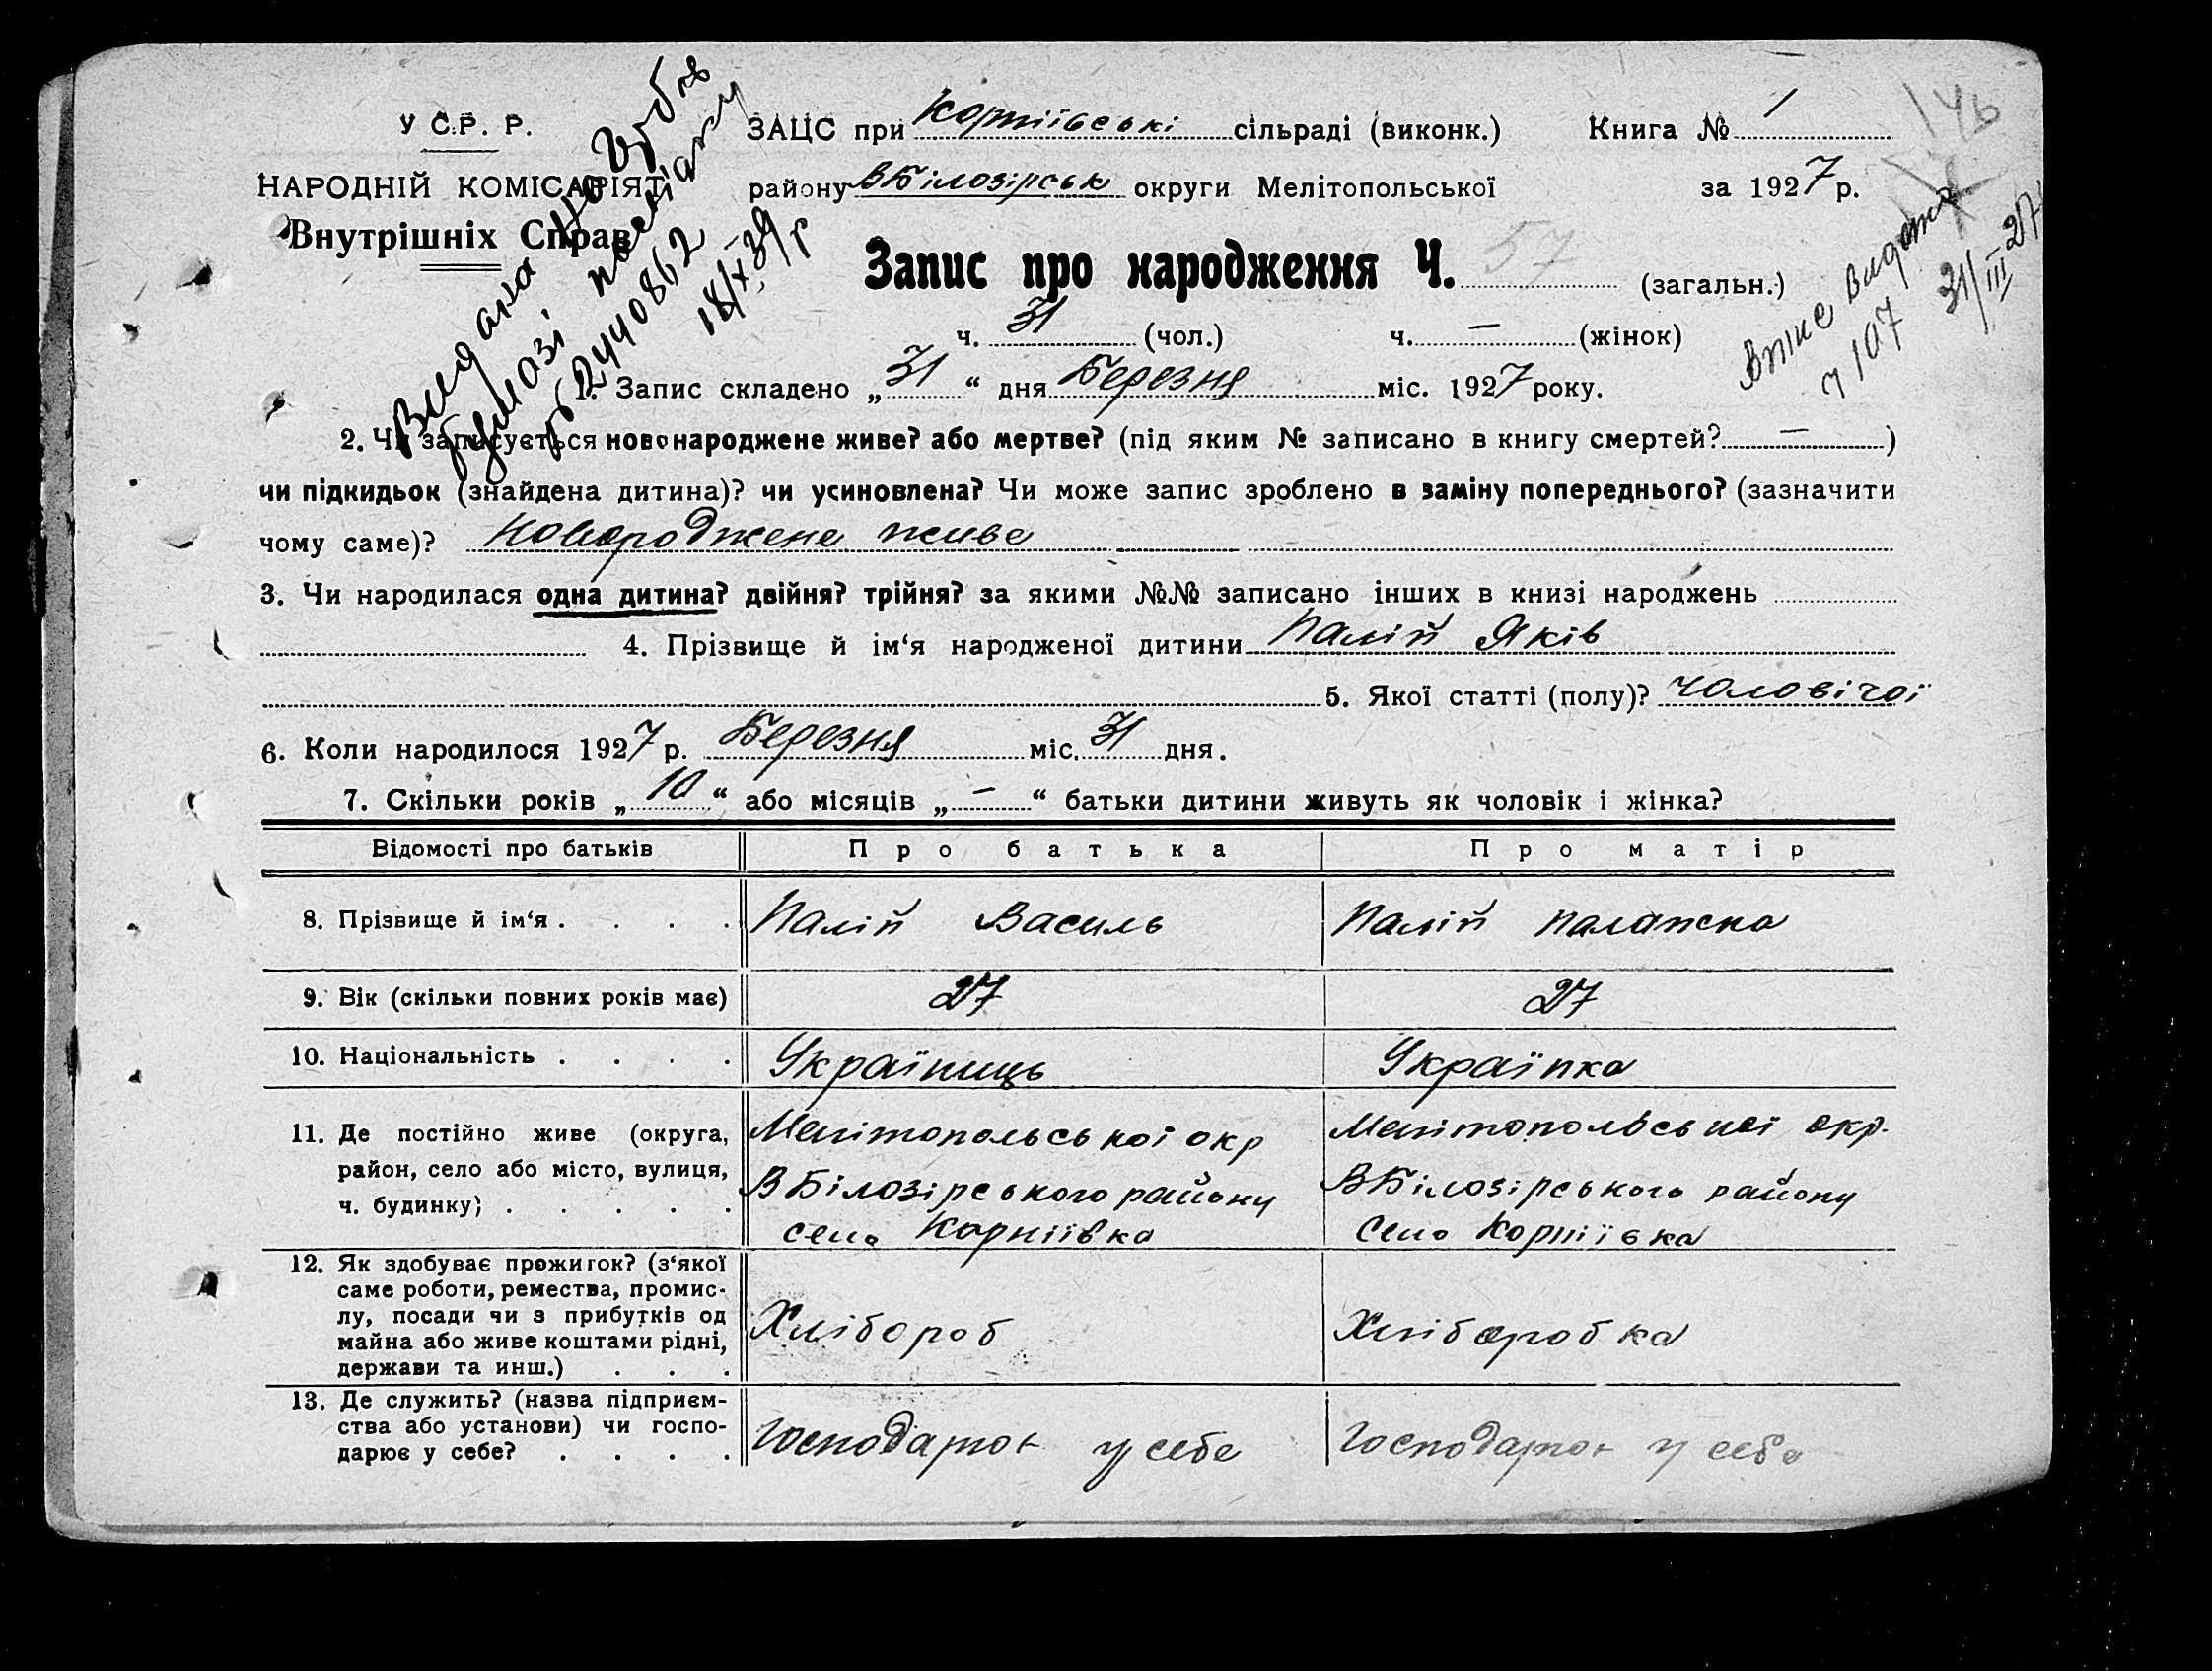 У С.Р. Р.
НАРОДНІЙ КОМІСАРІЯТ
Внутрішніх Справ
ЗАЦС при Корніївські сільраді (виконк.) Книга № 1
району ВБілозірськ округи Мелітопольської за 1927 р.
146
Видана на
№ 2440862
18/X 39 р
Запис про народження Ч. 57 (загальн.)
Вже видана
ч 107 31/III 27
ч. 31 (чол.) ч. — (жінок)
1. Запис складено „31“ дня Березня міс. 1927 року.
2. Чи записується новонароджене живе? або мертве? (під яким № записано в книгу смертей? — )
чи підкидьок (знайдена дитина)? чи усиновлена? Чи може запис зроблено в заміну попереднього? (зазначити
чому саме)? Новороджене живе
3. Чи народилася одна дитина? двійня? трійня? за якими №№ записано інших в книзі народжень
4. Прізвище й ім‘я народженої дитини Палій Яків
5. Якої статті (полу)? чоловічої
6. Коли народилося 1927 р. Березня міс. 31 дня.
7. Скільки років „10“ або місяців „—“ батьки дитини живуть як чоловік і жінка?
Відомості про батьків Про батька Про матір
8. Прізвище й ім‘я . . . . Палій Василь Палій Палажка
9. Вік (скільки повних років має) 27 27
10. Національність . . . . Україниць Українка
11. Де постійно живе (округа, Мелітопольської окр Мелітопольської окр.
район, село або місто, вулиця, ВБілозірського району ВБілозірського району
ч. будинку) . . . . . село Корніівка село Корніівка
12. Як здобуває прожиток? (з‘якої
саме роботи, ремества, промис-
лу, посади чи з прибутків од Хлібороб Хліборобка
майна або живе коштами рідні,
держави та инш.) . . .
13. Де служить? (назва підприєм-
ства або установи) чи госпо- Господарює у себе Господарює у себе
дарює у себе? . . . .